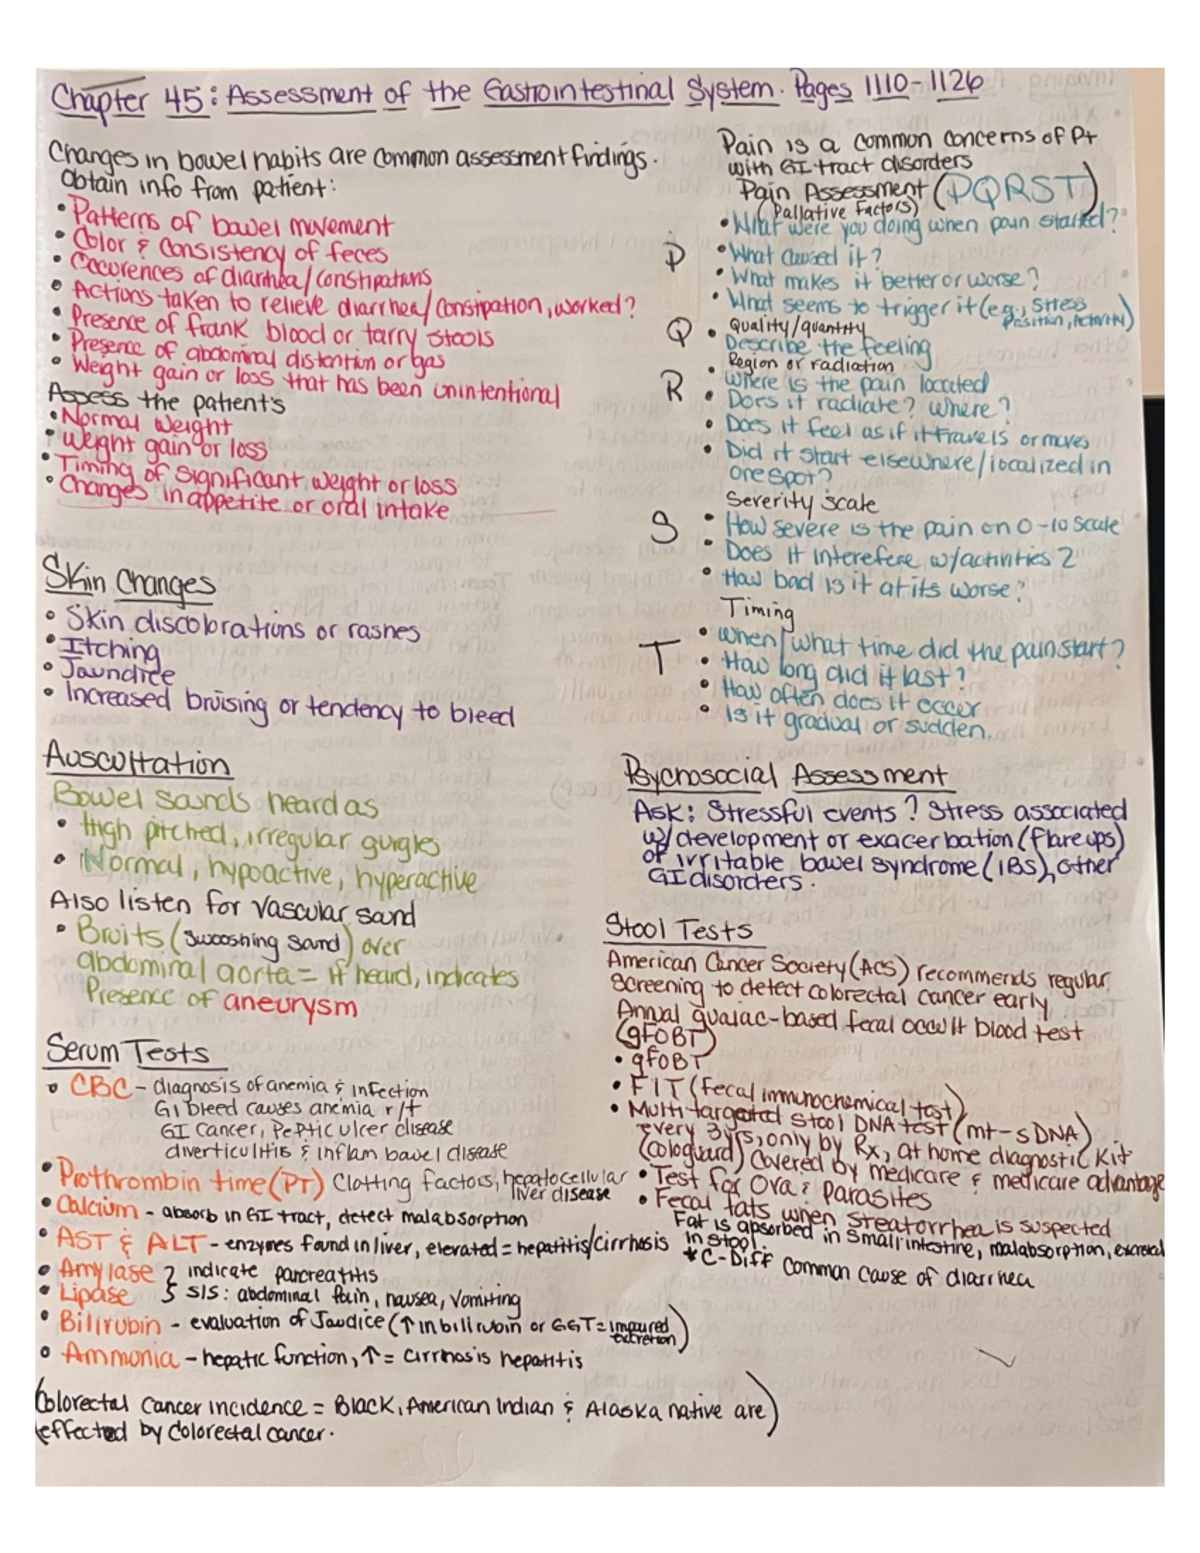 Chapter 45: Assessment of the Gastrointestinal System. Pages 1110-1126
Changes in bowel habits are common assessment findings.
Obtain info from patient:
• Patterns of bowel movement
• Color & consistency of feces
• Occurences of diarrhea/constipations
• Actions taken to relieve diarrhea/constipation, worked?
• Presence of frank blood or tarry stools
• Presence of abdominal distention or gas
• Weight gain or loss that has been unintentional
Assess the patient's
• Normal weight
• Weight gain or loss
• Timing of significant weight or loss
• Changes in appetite or oral intake
Skin Changes
• Skin discolorations or rashes
• Itching
• Jaundice
• Increased bruising or tendency to bleed
Auscultation
Bowel sounds heard as
• High pitched, irregular gurgles
• Normal, hypoactive, hyperactive
Also listen for vascular sound
• Bruits (swooshing sound) over
abdominal aorta = if heard, indicates
Presence of aneurysm
Serum Tests
• CBC - diagnosis of anemia & infection
GI bleed causes anemia r/t
GI cancer, Peptic ulcer disease
diverticulitis & inflam bowel disease
• Prothrombin time (PT) Clotting factors, hepatocellular
liver disease
• Calcium - absorb in GI tract, detect malabsorption
• AST & ALT - enzymes found in liver, elevated = hepatitis/cirrhosis
• Amylase } indicate pancreatitis
• Lipase } S/S: abdominal pain, nausea, vomiting
• Bilirubin - evaluation of Jaudice (↑ in bilirubin or GGT = impaired
excretion)
• Ammonia - hepatic function, ↑ = cirrhosis hepatitis
(Colorectal Cancer incidence = Black, American Indian & Alaska native are)
effected by colorectal cancer.
Pain is a common concerns of Pt
with GI tract disorders
Pain Assessment (PQRST)
(Pallative Factors)
• What were you doing when pain started?
P • What caused it?
• What makes it better or worse?
• What seems to trigger it (e.g., stress
Position, Activity)
Q • Quality/quantity
Describe the feeling
• Region or radiation
R • Where is the pain located
• Does it radiate? Where?
• Does it feel as if it travels or moves
• Did it start elsewhere/localized in
one spot?
Severity Scale
S • How severe is the pain on 0-10 scale
• Does it interefere w/activities?
• How bad is it at its worse?
Timing
T • When/what time did the pain start?
• How long did it last?
• How often does it occur
• Is it gradual or sudden.
Psychosocial Assessment
Ask: Stressful events? Stress associated
w/development or exacerbation (flare ups)
of irritable bowel syndrome (IBS), other
GI disorders.
Stool Tests
American Cancer Society (ACS) recommends regular
screening to detect colorectal cancer early
Annual guaiac-based fecal occult blood test
(gFOBT)
• gFOBT
• FIT (fecal immunochemical test)
• Multi-targeted stool DNA test (mt-sDNA)
every 3yrs, only by Rx, at home diagnostic kit
(cologuard) covered by medicare & medicare advantage
• Test for Ova & parasites
• Fecal fats when Steatorrhea is suspected
Fat is absorbed in small intestine, malabsorption, excreted
in stool
* C-Diff common cause of diarrhea